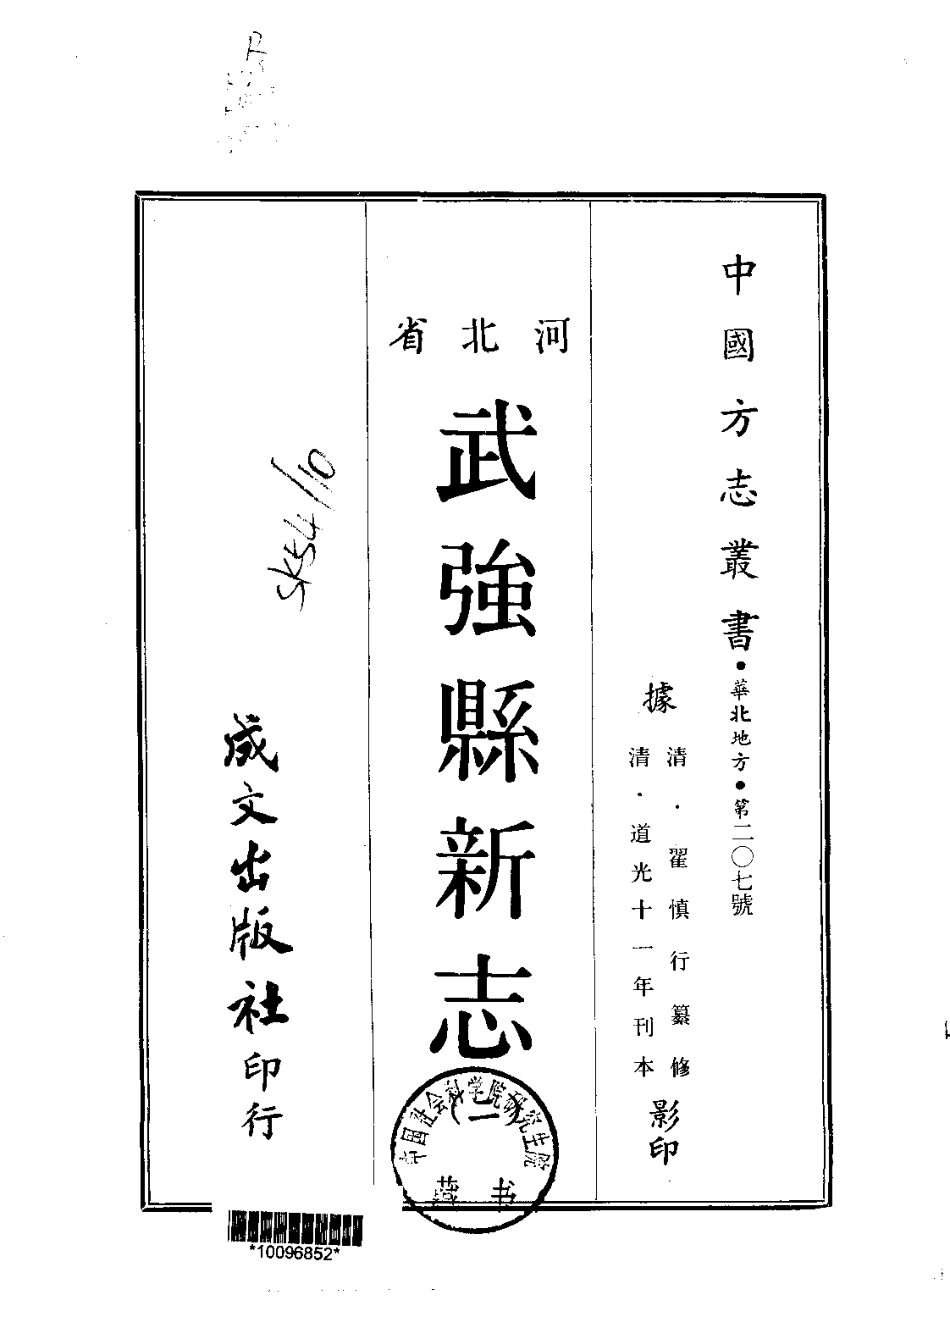 中國方志叢書・華北地方・第二〇七號
據
清・翟慎行纂修
清・道光十一年刊本
影印
河北省
武強縣新志
(二)
成文出版社印行
SK54/10
中国社会科学院研究生院
藏书
*10096852*